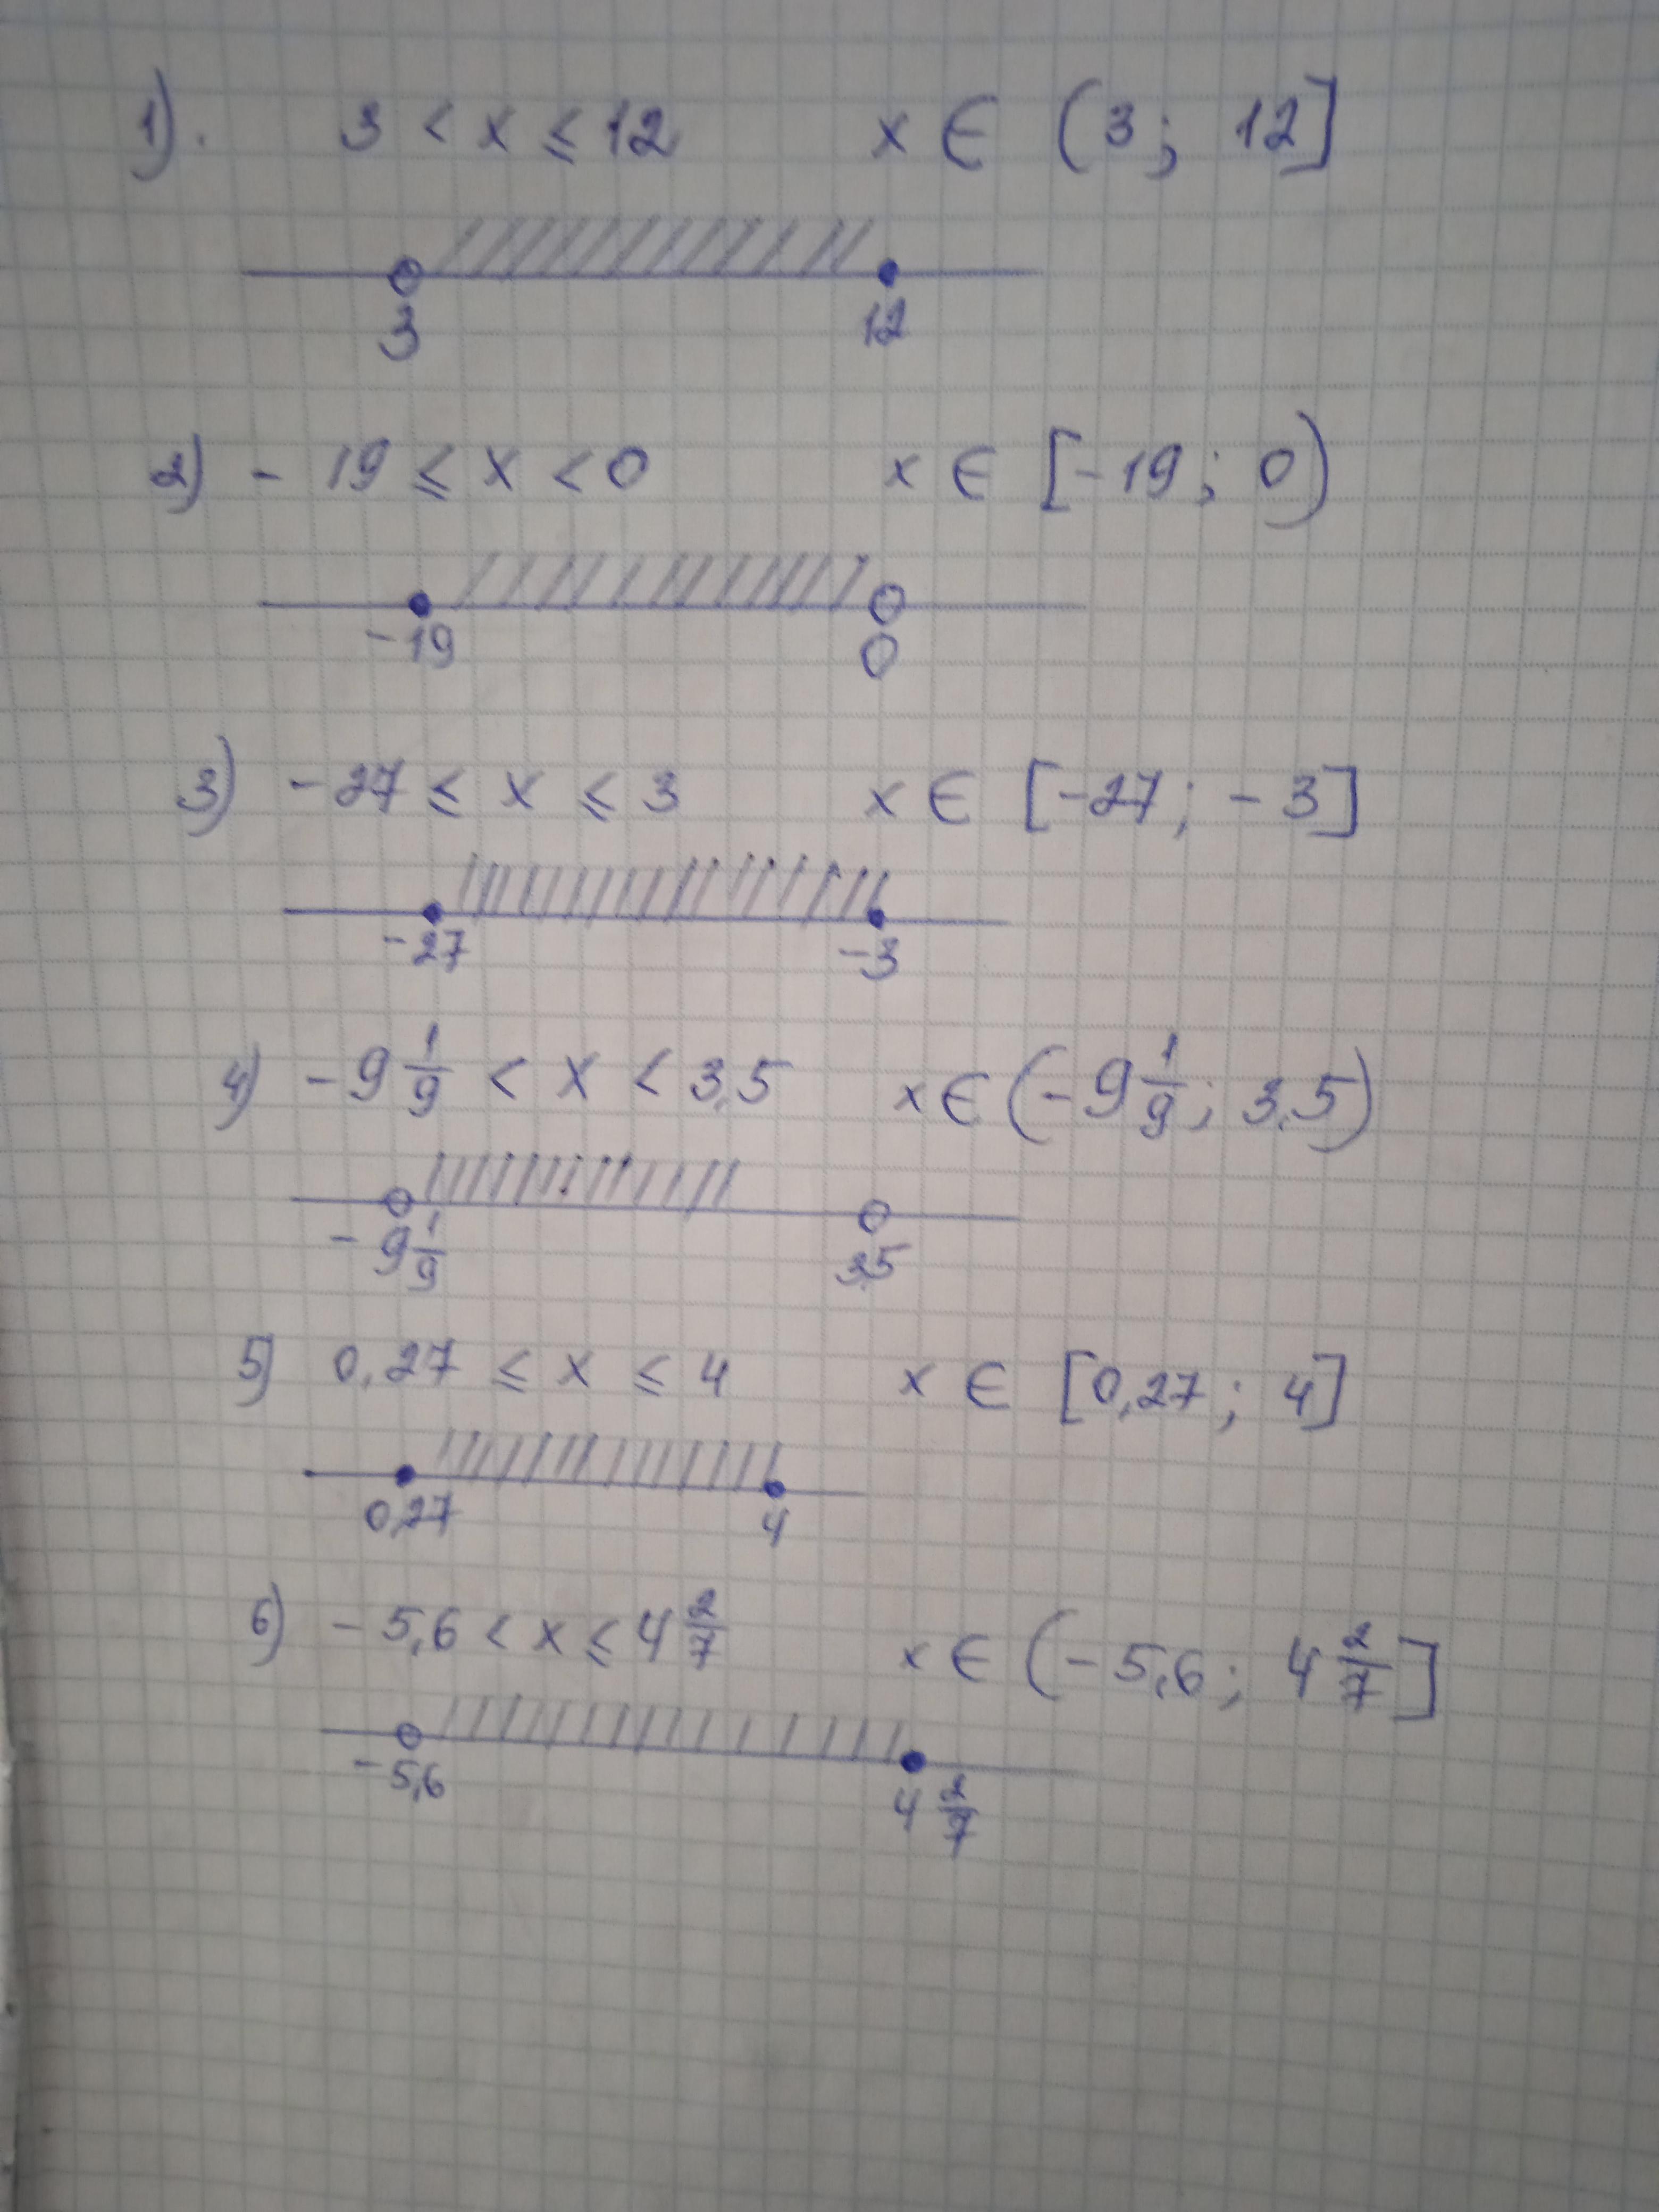 1). 3 < x ≤ 12 x ∈ (3; 12]
3 12
2) - 19 ≤ x < 0 x ∈ [-19; 0)
-19 0
3) -27 ≤ x ≤ 3 x ∈ [-27; -3]
-27 -3
4) -9 1/9 < x < 3,5 x ∈ (-9 1/9; 3,5)
-9 1/9 3,5
5) 0,27 ≤ x ≤ 4 x ∈ [0,27; 4]
0,27 4
6) -5,6 < x ≤ 4 2/7 x ∈ (-5,6; 4 2/7]
-5,6 4 2/7